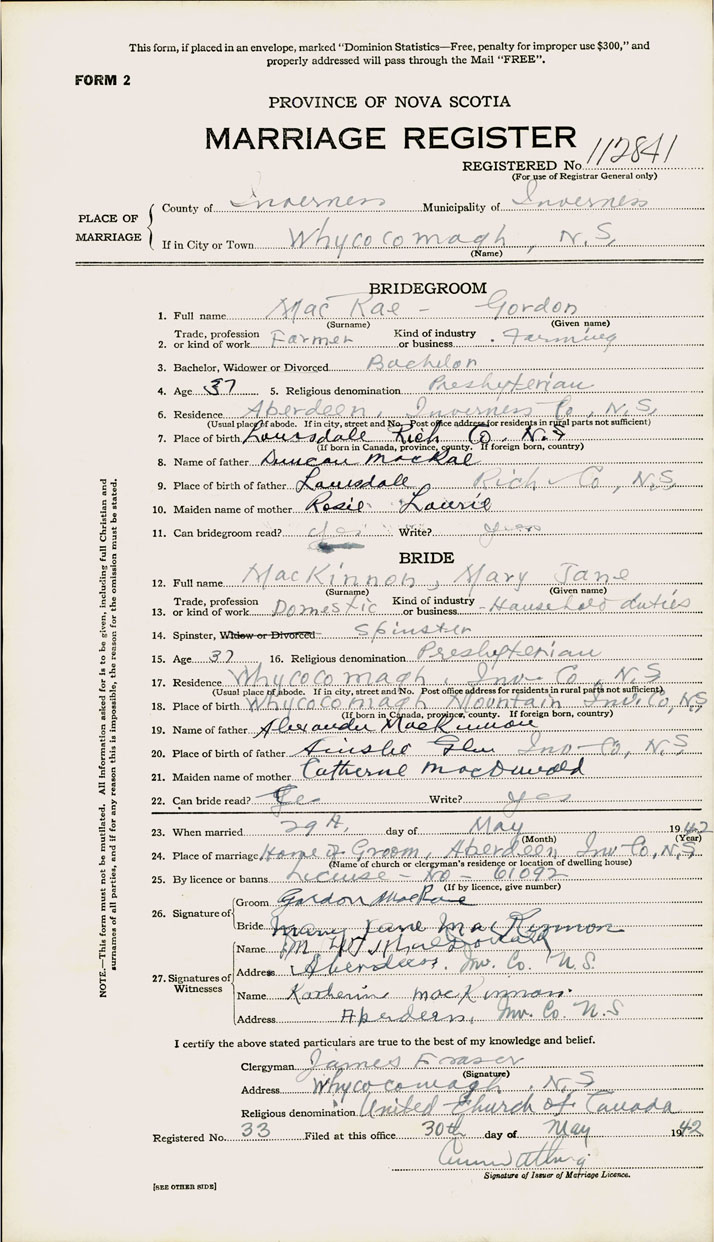 This form, if placed in an envelope, marked "Dominion Statistics—Free, penalty for improper use $300," and
properly addressed will pass through the Mail "FREE".
FORM 2
PROVINCE OF NOVA SCOTIA
MARRIAGE REGISTER
REGISTERED No. 112841
(For use of Registrar General only)
PLACE OF MARRIAGE
County of Inverness Municipality of Inverness
If in City or Town Whycocomagh, N.S.
(Name)
BRIDEGROOM
1. Full name MacRae - Gordon
(Surname) (Given name)
2. Trade, profession or kind of work Farmer Kind of industry or business Farming
3. Bachelor, Widower or Divorced Bachelor
4. Age 37 5. Religious denomination Presbyterian
6. Residence Aberdeen, Inverness Co, N.S.
(Usual place of abode. If in city, street and No. Post office address for residents in rural parts not sufficient)
7. Place of birth Rich Co, N.S
(If born in Canada, province, county. If foreign born, country)
8. Name of father Duncan MacRae
9. Place of birth of father Rich Co, N.S
10. Maiden name of mother Rosie Laurie
11. Can bridegroom read? yes Write? yes
BRIDE
12. Full name MacKinnon, Mary Jane
(Surname) (Given name)
13. Trade, profession or kind of work Domestic Kind of industry or business Household duties
14. Spinster, Widow or Divorced Spinster
15. Age 37 16. Religious denomination Presbyterian
17. Residence Whycocomagh, Inv. Co, N.S
(Usual place of abode. If in city, street and No. Post office address for residents in rural parts not sufficient)
18. Place of birth Whycocomagh Mountain Inv. Co, N.S
(If born in Canada, province, county. If foreign born, country)
19. Name of father Alexander MacKinnon
20. Place of birth of father Ainslie Glen Inv Co, N.S
21. Maiden name of mother Catherine MacDonald
22. Can bride read? Yes Write? yes
23. When married 29th day of May 1942
(Month) (Year)
24. Place of marriage Home of Groom, Aberdeen Inv Co, N.S
(Name of church or clergyman's residence or location of dwelling house)
25. By licence or banns License - No - 61092
(If by licence, give number)
26. Signature of
Groom Gordon MacRae
Bride Mary Jane MacKinnon
27. Signatures of Witnesses
Name MacDonald
Address Aberdeen, Inv. Co. N.S.
Name Katherine MacKinnon
Address Aberdeen, Inv. Co. N.S
I certify the above stated particulars are true to the best of my knowledge and belief.
Clergyman James Fraser
(Signature)
Address Whycocomagh, N.S
Religious denomination United Church of Canada
Registered No. 33 Filed at this office 30th day of May 1942
Signature of Issuer of Marriage Licence.
[SEE OTHER SIDE]
NOTE.—This form must not be mutilated. All information asked for is to be given, including full Christian and
surnames of all parties, and if for any reason this is impossible, the reason for the omission must be stated.